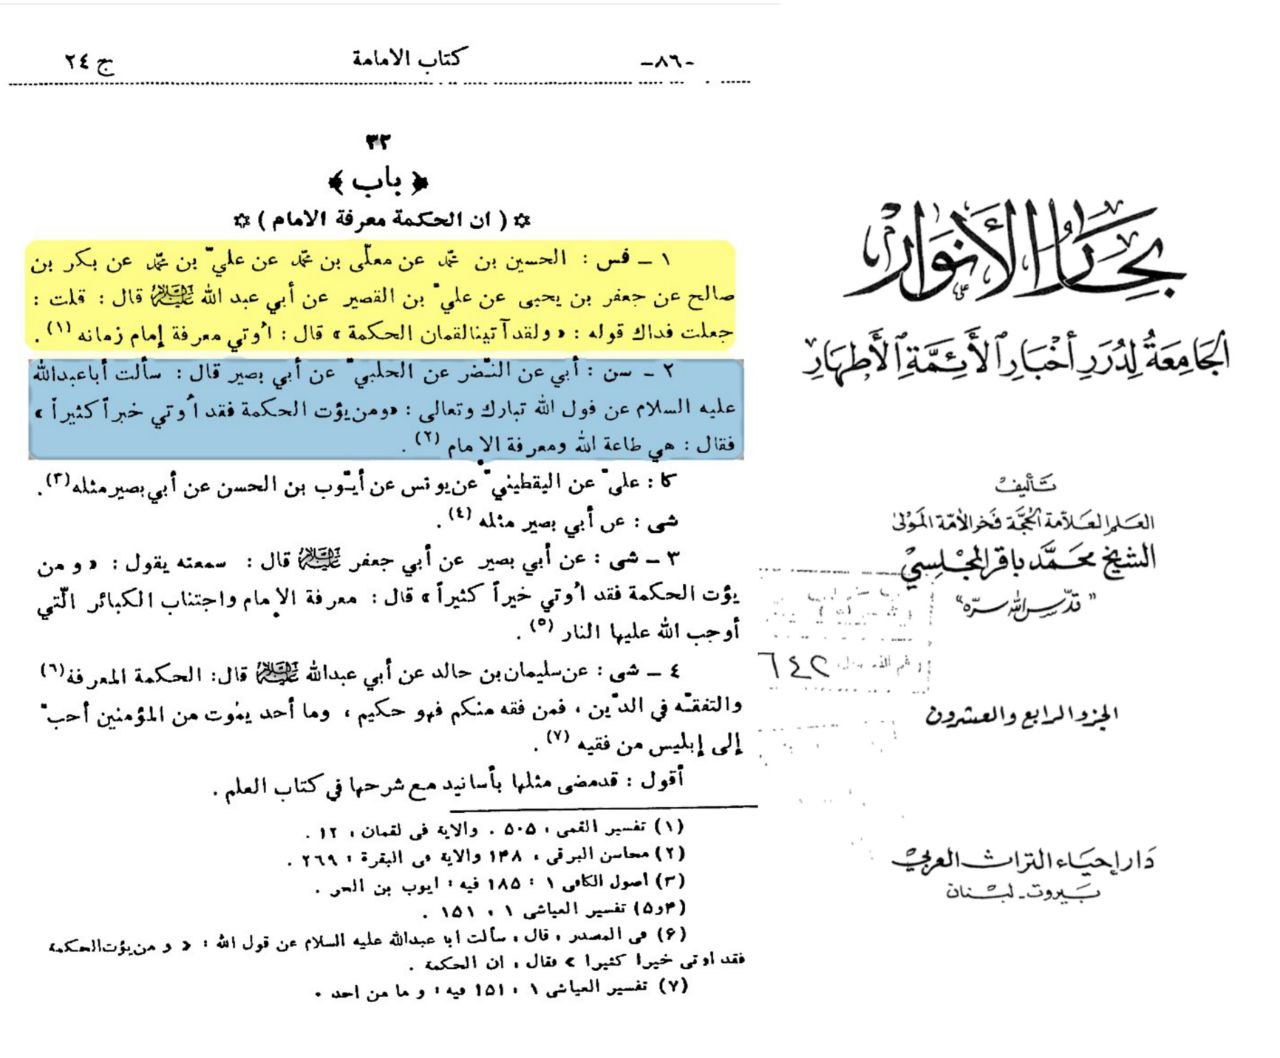 ج ٢٤ كتاب الامامة -٨٦-
٣٢
﴿ باب ﴾
✡ ( ان الحكمة معرفة الامام ) ✡
١ ـ فس : الحسين بن محمّد عن معلّى بن محمّد عن عليّ بن محمّد عن بكر بن
صالح عن جعفر بن يحيى عن عليّ بن القصير عن أبي عبد الله عليه السلام قال : قلت :
جعلت فداك قوله : « ولقد آتينا لقمان الحكمة » قال : اُوتي معرفة إمام زمانه (١) .
٢ ـ سن : أبي عن النّضر عن الحلبيّ عن أبي بصير قال : سألت أباعبدالله
عليه السلام عن قول الله تبارك وتعالى : « ومن يؤت الحكمة فقد اُوتي خيراً كثيراً »
فقال : هي طاعة الله ومعرفة الإمام (٢) .
كا : عليّ عن اليقطينيّ عن يونس عن أيّوب بن الحسن عن أبي بصير مثله (٣) .
شى : عن أبي بصير مثله (٤) .
٣ ـ شى : عن أبي بصير عن أبي جعفر عليه السلام قال : سمعته يقول : « و من
يؤت الحكمة فقد اُوتي خيراً كثيراً » قال : معرفة الإمام واجتناب الكبائر الّتي
أوجب الله عليها النار (٥) .
٤ ـ شى : عن سليمان بن خالد عن أبي عبدالله عليه السلام قال : الحكمة المعرفة (٦)
والتفقّه في الدّين ، فمن فقه منكم فهو حكيم ، وما أحد يموت من المؤمنين أحبّ
إلى إبليس من فقيه (٧) .
أقول : قدمضى مثلها بأسانيد مع شرحها في كتاب العلم .
(١) تفسير القمى ، ٥٠٥ . والاية فى لقمان ، ١٢ .
(٢) محاسن البرقى ، ١۴٨ والاية فى البقرة : ٢۶٩ .
(٣) اصول الكافى ١ : ١٨۵ فيه : ايوب بن الحر .
(۴و۵) تفسير العياشى ١ ، ١۵١ .
(۶) فى المصدر ، قال ، سألت ابا عبدالله عليه السلام عن قول الله : « و من يؤت الحكمة
فقد اوتى خيرا كثيرا » فقال ، ان الحكمة .
(٧) تفسير العياشى ١ ، ١۵١ فيه : و ما من احد .
بحار الأنوار
الجَامِعَةُ لِدُرَرِ أَخْبَارِ الأَئِمَّةِ الأَطْهَارِ
تأليف
العلم العلامة الحجة فخر الأمة المولى
الشيخ محمد باقر المجلسي
"قدس الله سره"
٦٤٢
الجزء الرابع والعشرون
دار إحياء التراث العربي
بيروت ـ لبنان